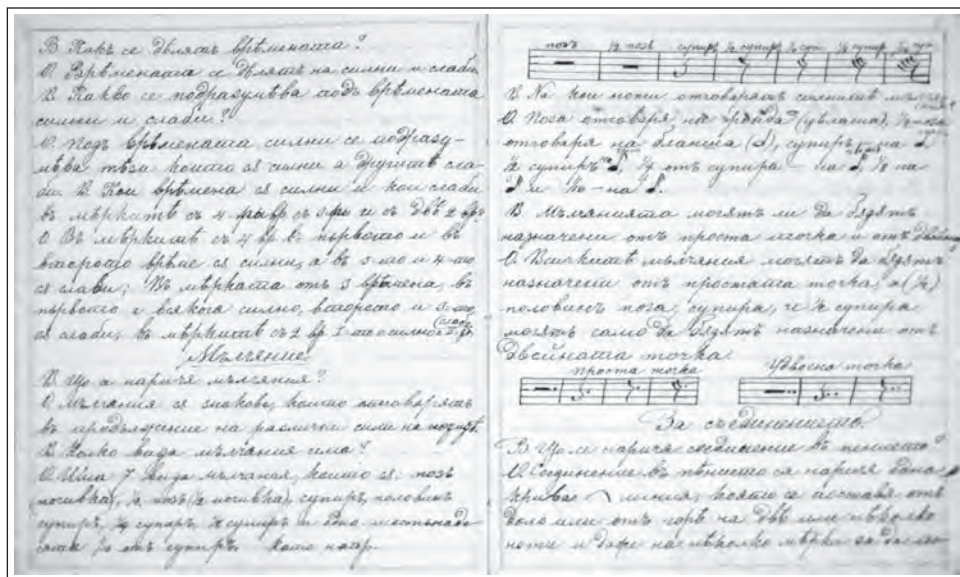 В Какъ се дѣлятъ врѣмената?
О Заврѣмената се дѣлятъ на силни и слаби
В. Какво се подразумѣва подъ врѣмената
силни и слаби?
О. Подъ врѣмената силни се подразу-
мѣва тѣзи които сѫ силни а другитѣ сла-
би. В Кои врѣмена сѫ силни и кои слаби
въ мѣркитѣ съ 4 съ 3 и съ двѣ 2 вр.
О Въ мѣркитѣ съ 4 вр. първото и въ
второто врѣме сѫ силни, а въ 3-то и 4-то
сѫ слаби; Въ мѣрката отъ 3 врѣмена, въ
първото е всякога силно, второто и 3-то
сѫ слаби, въ мѣркитѣ съ 2 вр. 1-то силно
Мълчение
В. Що а нарича мълчания?
О Мълчания сѫ знакове, които отговарятъ
въ продължение на различни сили на нотитѣ
В Колко вида мълчания има?
О Има 7 вида мълчания, които сѫ. позъ
почивка), ½ позъ (½ почивка), супиръ, половинъ
супиръ, ¼ супиръ, ⅛ супиръ и една шестьнаде-
сета отъ супиръ.
позъ ½ позъ супиръ ½ супиръ ¼ суп ⅛ супир
В. На кои ноти отговарятъ мълч
О Поза отговаря на (цѣлата), ½ поза
отговаря на бланша супиръ на
½ супиръ ¼ отъ супира – на ⅛ на
и – на
В. Мълчанията могатъ ли да бѫдатъ
назначени отъ проста точка и отъ двойна
О. Всичкитѣ мълчения могатъ да бѫдатъ
назначени отъ простата точка, а (½)
половинъ поза, супира, и ½ супира
могатъ само да бѫдатъ назначени отъ
двойната точка
проста точка Удвоена точка
За съединението
В Що се нарича соединение въ пението?
О. Соединение въ пѣнието са нарича една
крива линия, която се поставя отъ
долу или отъ горѣ на двѣ или нѣколко
ноти и даже на нѣколко мѣрки за да